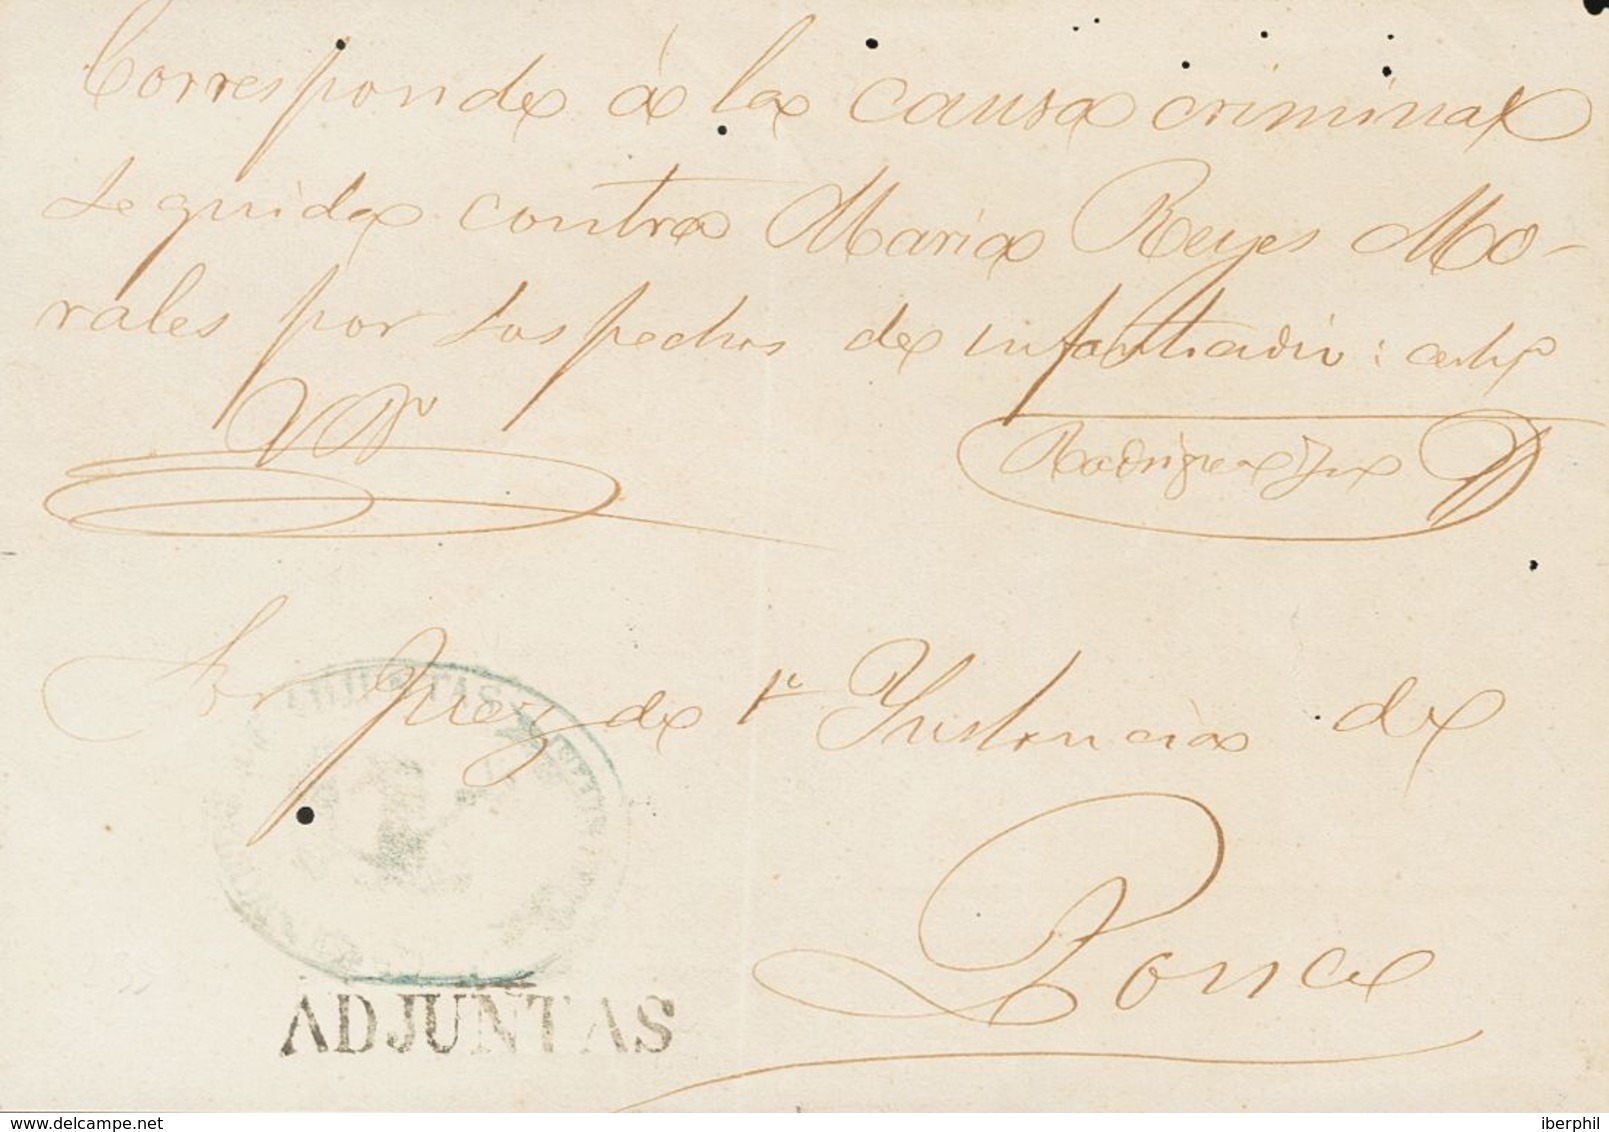 Corresponde á la causa criminal
seguida contra Maria Reyes Mo-
rales por sospechas de infanticidio: certifo
Rodriguez
Sor Juez de 1a Instancia de
ADJUNTAS
Ponce
ADJUNTAS
delcampe.net
iberphil